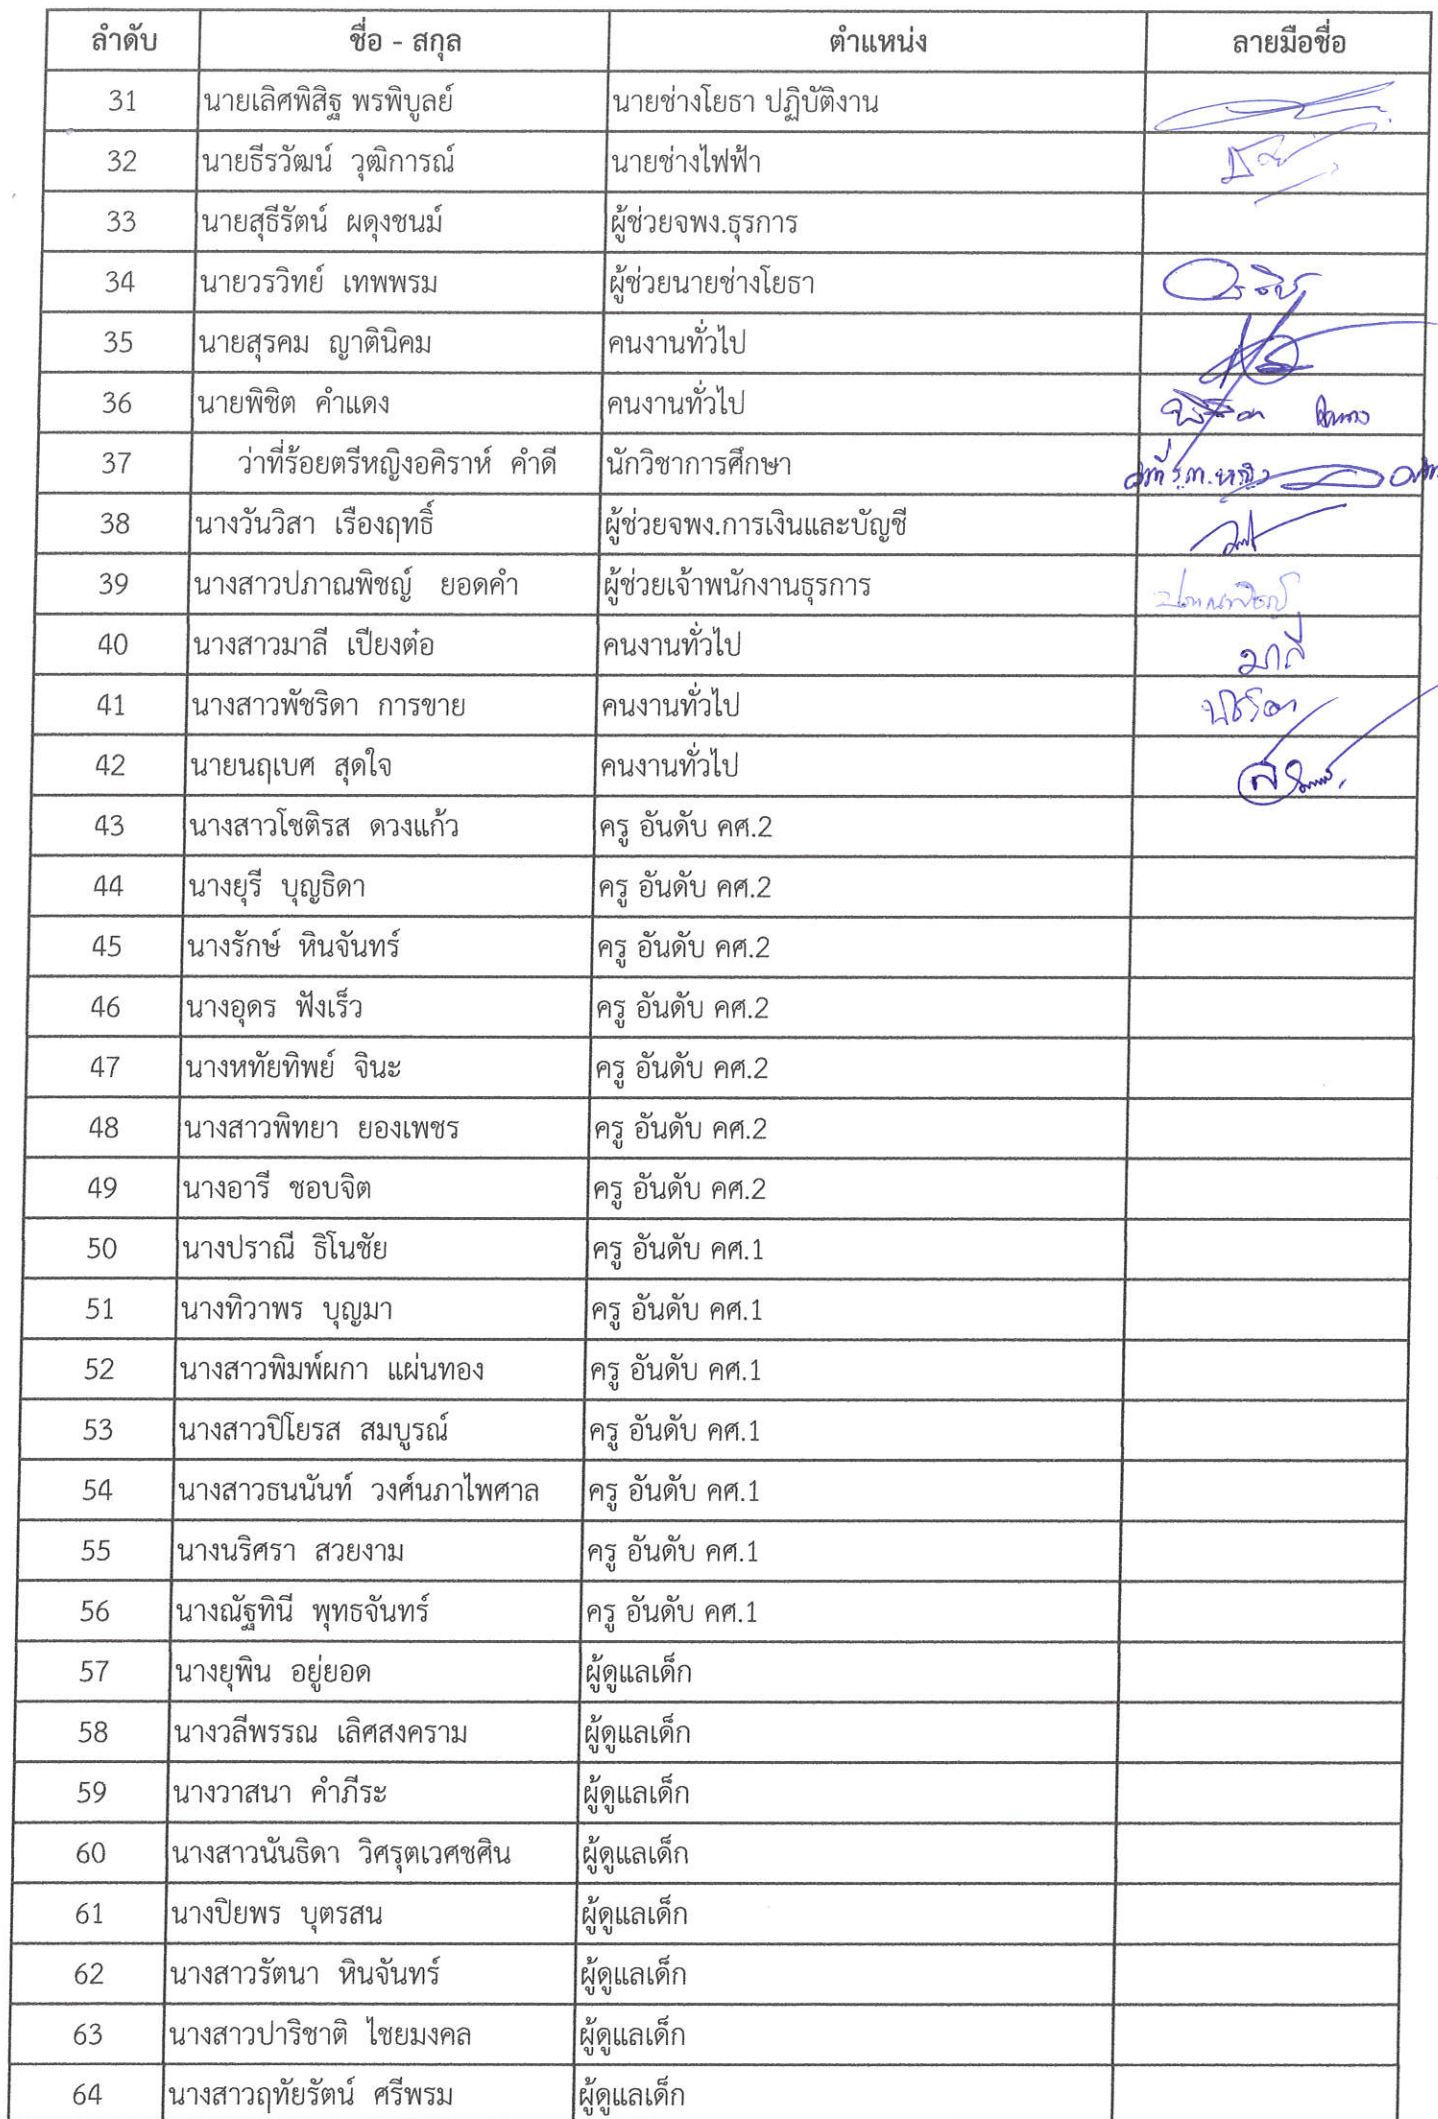 ลำดับ ชื่อ - สกุล ตำแหน่ง ลายมือชื่อ
31 นายเลิศพิสิฐ พรพิบูลย์ นายช่างโยธา ปฏิบัติงาน
32 นายธีรวัฒน์ วุฒิการณ์ นายช่างไฟฟ้า
33 นายสุธีรัตน์ ผดุงชนม์ ผู้ช่วยจพง.ธุรการ
34 นายวรวิทย์ เทพพรม ผู้ช่วยนายช่างโยธา
35 นายสุรคม ญาตินิคม คนงานทั่วไป
36 นายพิชิต คำแดง คนงานทั่วไป
37 ว่าที่ร้อยตรีหญิงอคิราห์ คำดี นักวิชาการศึกษา
38 นางวันวิสา เรืองฤทธิ์ ผู้ช่วยจพง.การเงินและบัญชี
39 นางสาวปภาณพิชญ์ ยอดคำ ผู้ช่วยเจ้าพนักงานธุรการ
40 นางสาวมาลี เปียงต๋อ คนงานทั่วไป มาลี
41 นางสาวพัชริดา การขาย คนงานทั่วไป
42 นายนฤเบศ สุดใจ คนงานทั่วไป
43 นางสาวโชติรส ดวงแก้ว ครู อันดับ คศ.2
44 นางยุรี บุญธิดา ครู อันดับ คศ.2
45 นางรักษ์ หินจันทร์ ครู อันดับ คศ.2
46 นางอุดร ฟังเร็ว ครู อันดับ คศ.2
47 นางหทัยทิพย์ จินะ ครู อันดับ คศ.2
48 นางสาวพิทยา ยองเพชร ครู อันดับ คศ.2
49 นางอารี ชอบจิต ครู อันดับ คศ.2
50 นางปราณี ธิโนชัย ครู อันดับ คศ.1
51 นางทิวาพร บุญมา ครู อันดับ คศ.1
52 นางสาวพิมพ์ผกา แผ่นทอง ครู อันดับ คศ.1
53 นางสาวปิโยรส สมบูรณ์ ครู อันดับ คศ.1
54 นางสาวธนนันท์ วงศ์นภาไพศาล ครู อันดับ คศ.1
55 นางนริศรา สวยงาม ครู อันดับ คศ.1
56 นางณัฐทินี พุทธจันทร์ ครู อันดับ คศ.1
57 นางยุพิน อยู่ยอด ผู้ดูแลเด็ก
58 นางวลีพรรณ เลิศสงคราม ผู้ดูแลเด็ก
59 นางวาสนา คำภีระ ผู้ดูแลเด็ก
60 นางสาวนันธิดา วิศรุตเวศชศิน ผู้ดูแลเด็ก
61 นางปิยพร บุตรสน ผู้ดูแลเด็ก
62 นางสาวรัตนา หินจันทร์ ผู้ดูแลเด็ก
63 นางสาวปาริชาติ ไชยมงคล ผู้ดูแลเด็ก
64 นางสาวฤทัยรัตน์ ศรีพรม ผู้ดูแลเด็ก